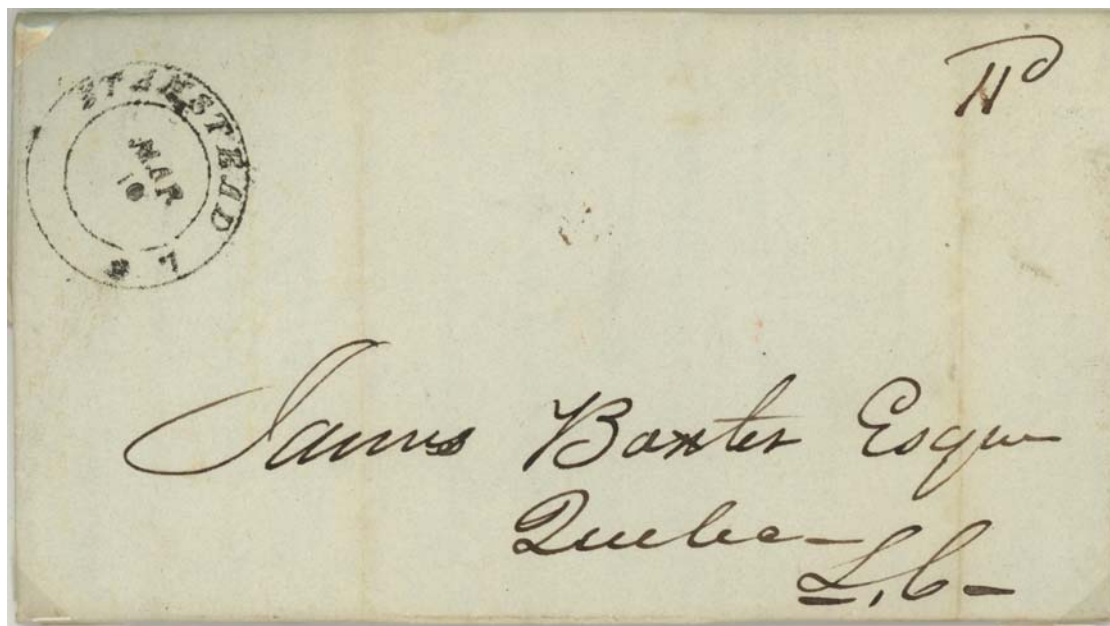 STANSTEAD L.C
MAR
10
11d
James Baxter Esqre
Quebec
L.C